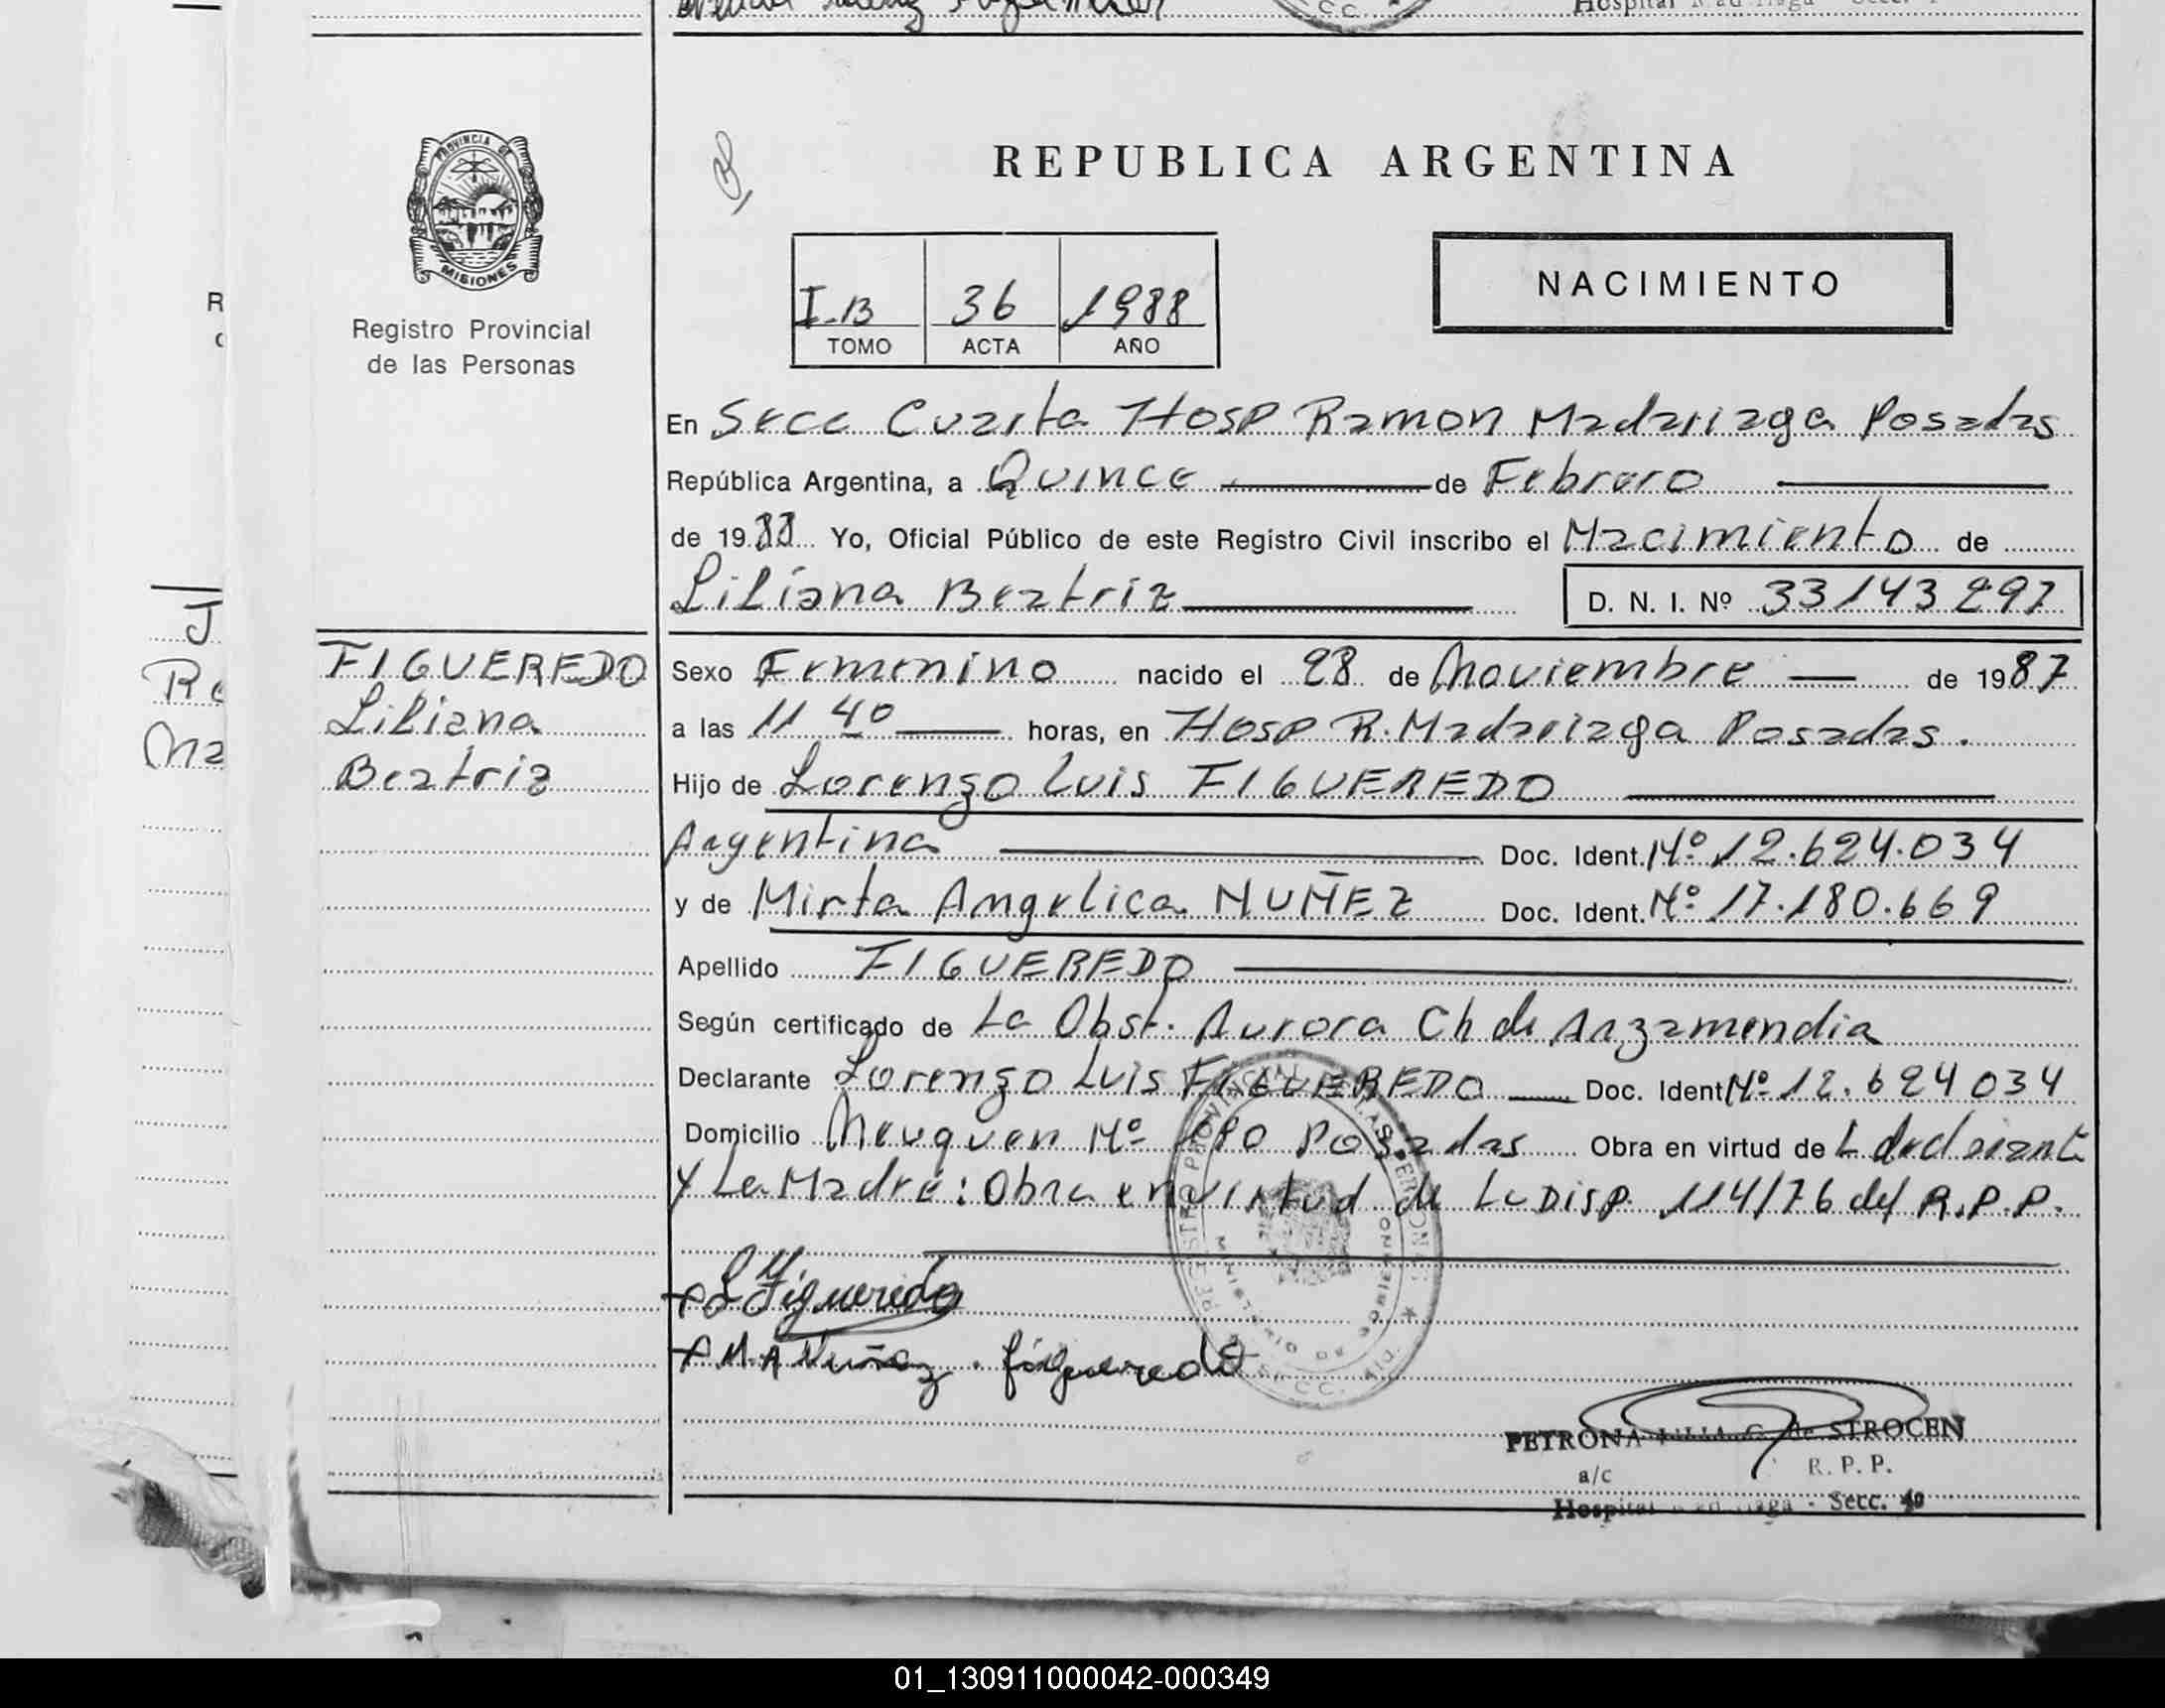 PROVINCIA DE
MISIONES
Registro Provincial
de las Personas
REPUBLICA ARGENTINA
I-B 36 1988
TOMO ACTA AÑO
NACIMIENTO
En Secc Cuarta Hosp Ramon Madariaga Posadas
República Argentina, a Quince de Febrero
de 1988 Yo, Oficial Público de este Registro Civil inscribo el Nacimiento de
Liliana Beatriz D. N. I. Nº 33143297
FIGUEREDO
Liliana
Beatriz
Sexo Femenino nacido el 28 de Noviembre de 1987
a las 11 40 horas, en Hosp R. Madariaga Posadas.
Hijo de Lorenzo Luis FIGUEREDO
Argentina Doc. Ident. Nº 12.624.034
y de Mirta Angelica NUÑEZ Doc. Ident. Nº 17.180.669
Apellido FIGUEREDO
Según certificado de La Obst. Aurora Ch de Arzamendia
Declarante Lorenzo Luis FIGUEREDO Doc. Ident Nº 12.624034
Domicilio Neuquen Nº Posadas Obra en virtud de L declarante
y La Madre: Obra en virtud de La Disp. 114/76 del R.P.P.
L Figueredo
M.A Nuñez. figueredo
PETRONA C. de STROCEN
a/c R. P. P.
Hospital - Secc.
01_130911000042-000349